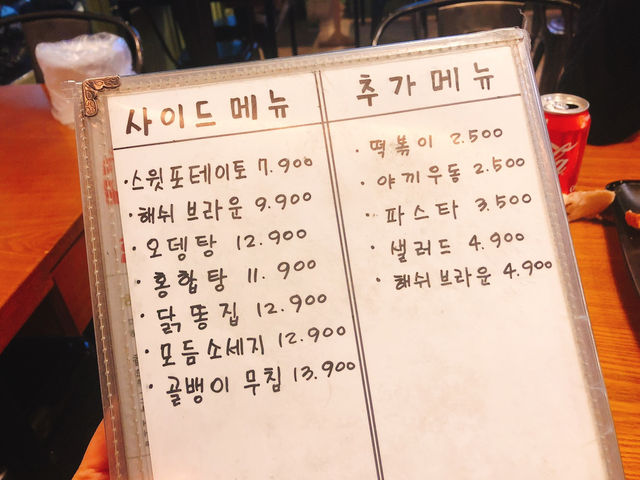 사이드 메뉴
· 스윗포테이토 7.900
· 해쉬 브라운 9.900
· 오뎅탕 12.900
· 홍합탕 11.900
· 닭똥집 12.900
· 모듬소세지 12.900
· 골뱅이 무침 13.900
추가메뉴
· 떡볶이 2.500
· 야끼우동 2.500
· 파스타 3.500
· 샐러드 4.900
· 해쉬 브라운 4.900